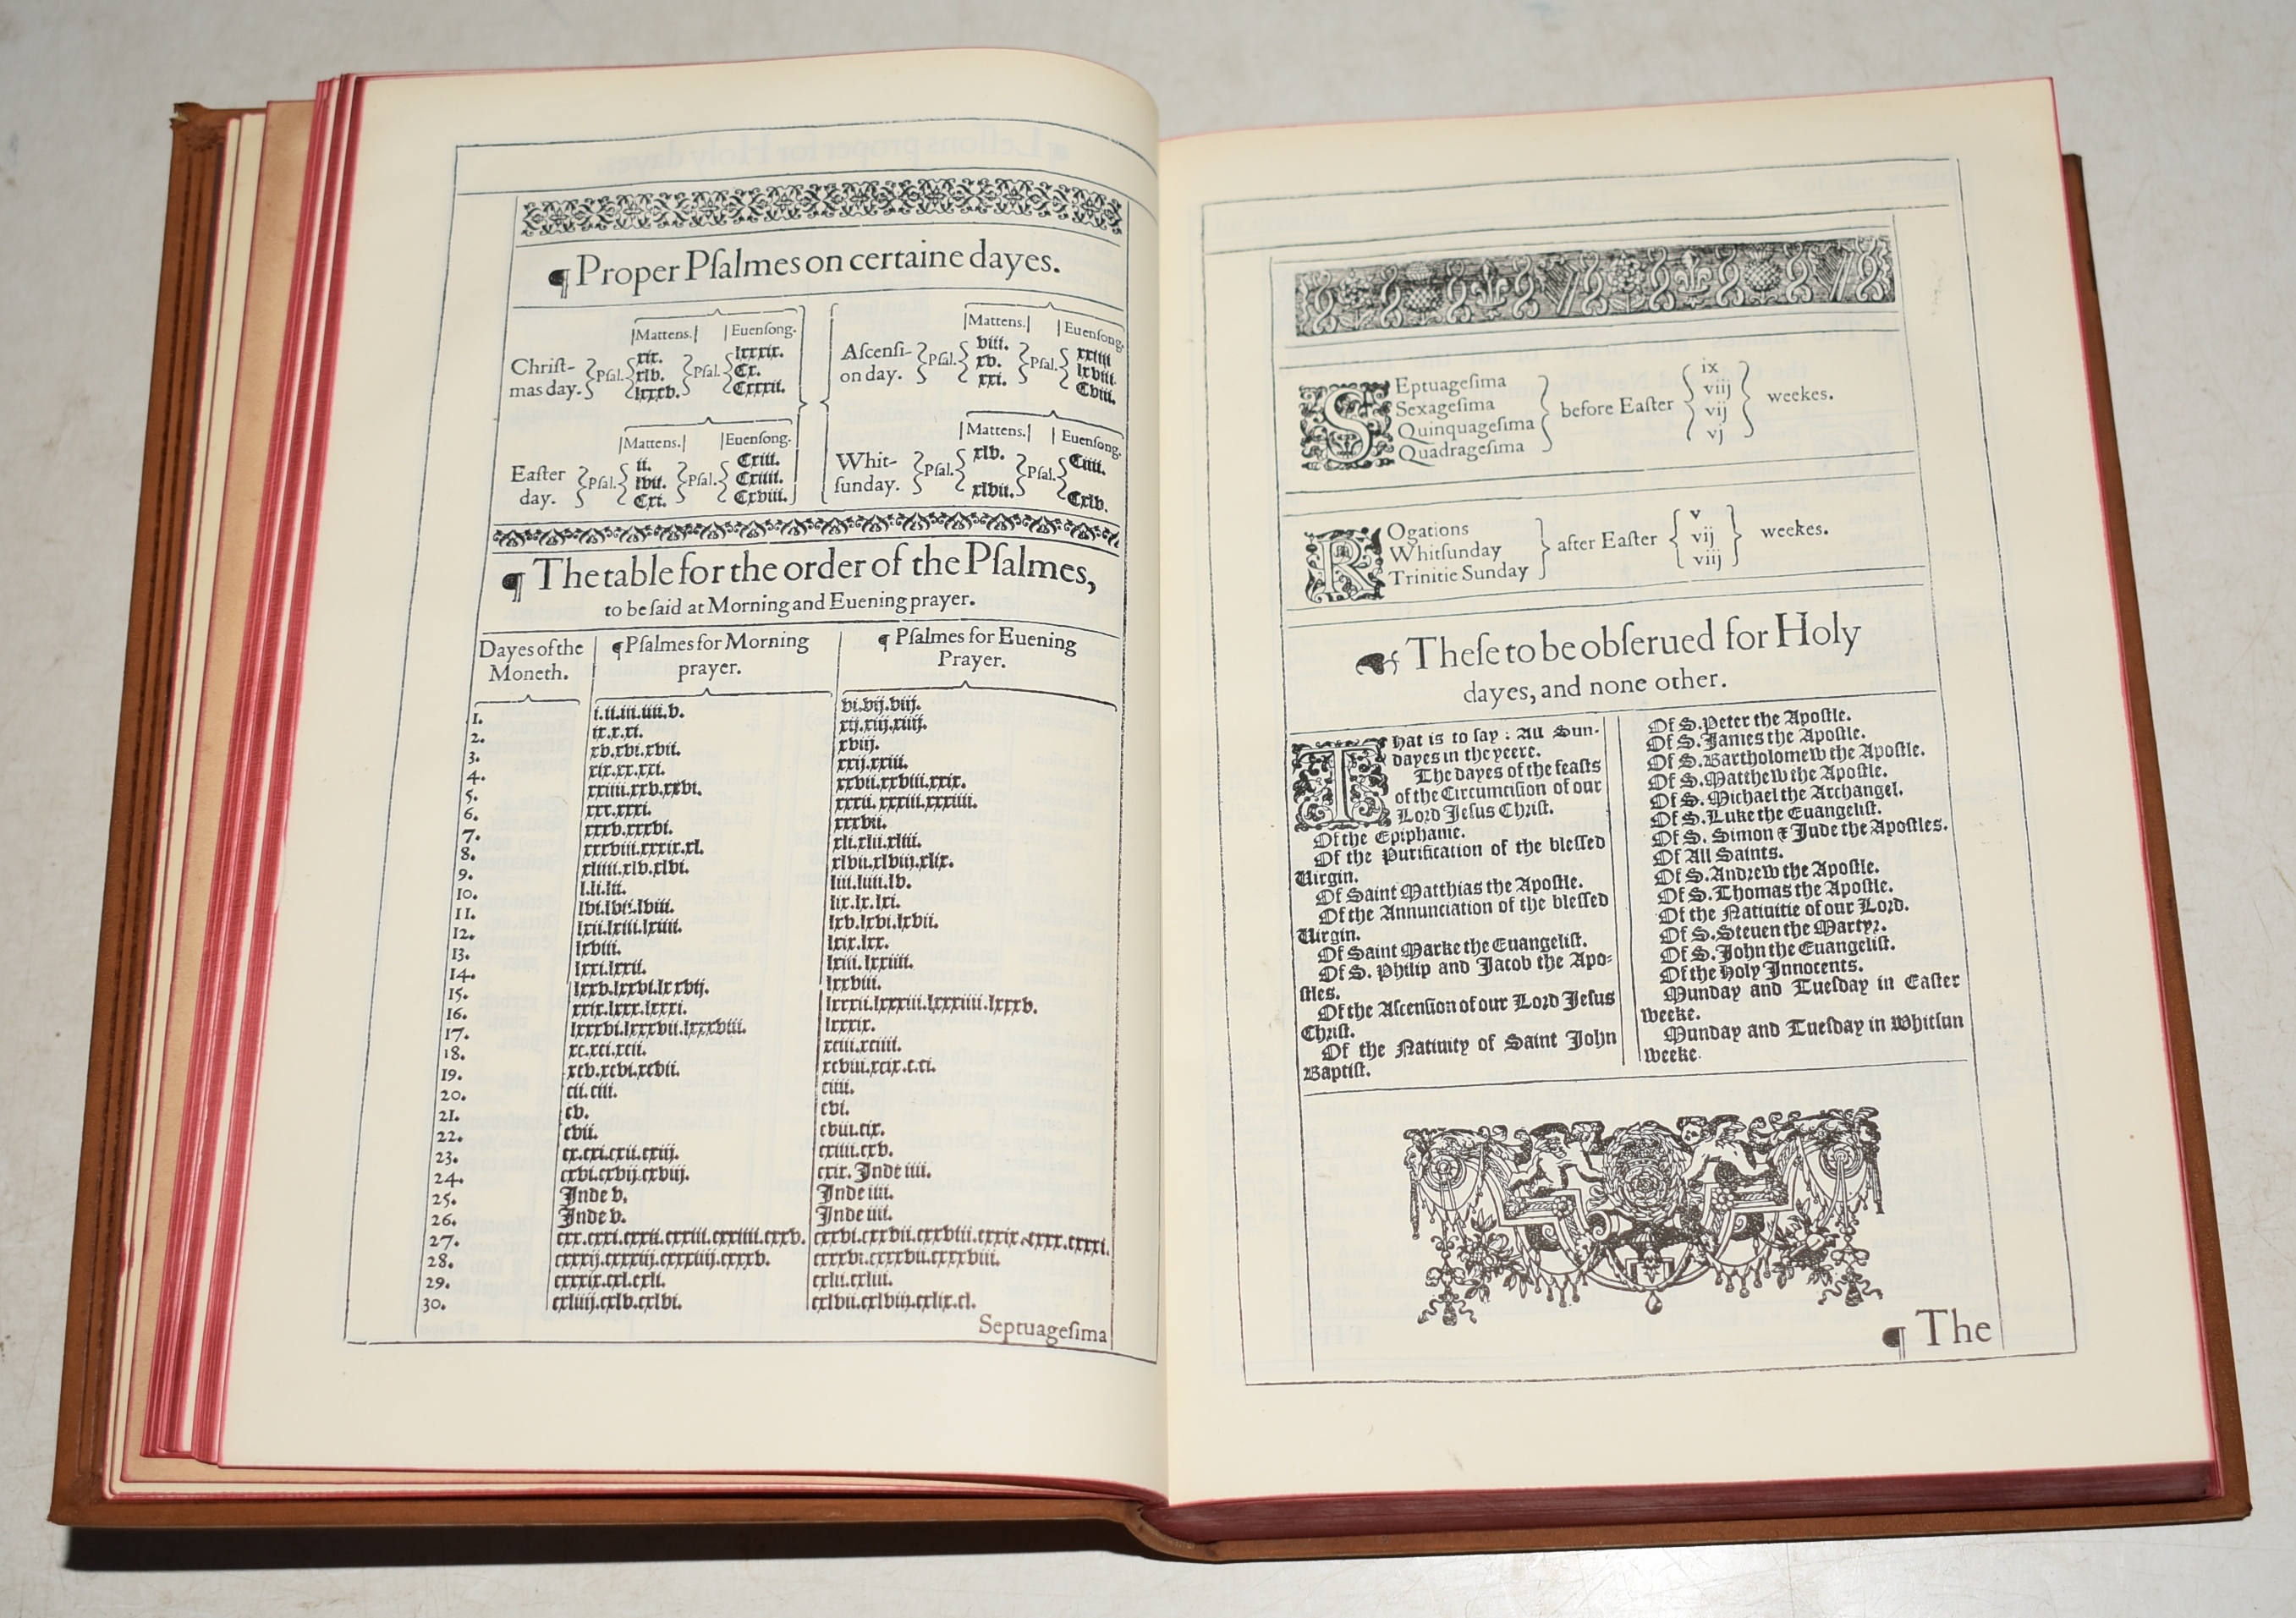 ¶ Proper Pſalmes on certaine dayes.
Mattens. Euenſong.
Chriſt-
mas day. Pſal. xix. xlb. lxxxb. Pſal. lxxxix. Cx. Cxxxii.
Mattens. Euenſong.
Eaſter
day. Pſal. ii. lvii. Cxi. Pſal. Cxiii. Cxiiii. Cxviii.
Mattens. Euenſong.
Aſcenſi-
on day. Pſal. viii. xv. xxi. Pſal. xxiiii lxviii. Cviii.
Mattens. Euenſong.
Whit-
ſunday. Pſal. xlv. xlvii. Pſal. Ciiii. Cxlv.
¶ The table for the order of the Pſalmes,
to be ſaid at Morning and Euening prayer.
Dayes of the
Moneth.
¶ Pſalmes for Morning
prayer.
¶ Pſalmes for Euening
Prayer.
1. i.ii.iii.iiii.v. vi.vij.viij.
2. ix.x.xi. xij.xiij.xiiij.
3. xv.xvi.xvii. xviij.
4. xix.xx.xxi. xxij.xxiii.
5. xxiiii.xxv.xxvi. xxvii.xxviii.xxix.
6. xxx.xxxi. xxxii.xxxiii.xxxiiii.
7. xxxv.xxxvi. xxxvii.
8. xxxviii.xxxix.xl. xli.xlii.xliii.
9. xliiii.xlv.xlvi. xlvii.xlviij.xlix.
10. l.li.lii. liii.liiii.lv.
11. lvi.lvii.lviii. lix.lx.lxi.
12. lxii.lxiii.lxiiii. lxv.lxvi.lxvii.
13. lxviii. lxix.lxx.
14. lxxi.lxxii. lxiii.lxxiiii.
15. lxxv.lxxvi.lxxvij. lxxviii.
16. xxix.lxxx.lxxxi. lxxxii.lxxxiii.lxxxiiii.lxxxv.
17. lxxxvi.lxxxvii.lxxxviii. lxxxix.
18. xc.xci.xcii. xciii.xciiii.
19. xcv.xcvi.xcvii. xcviii.xcix.c.ci.
20. cii.ciii. ciiii.
21. cv. cvi.
22. cvii. cviii.cix.
23. cx.cxi.cxii.cxiij. cxiiii.cxv.
24. cxvi.cxvij.cxviij. cxix. Inde iiii.
25. Inde v. Inde iiii.
26. Inde v. Inde iiii.
27. cxx.cxxi.cxxii.cxxiii.cxxiiii.cxxv. cxxvi.cxxvii.cxxviii.cxxix.cxxx.cxxxi.
28. cxxxij.cxxxiij.cxxxiiij.cxxxv. cxxxvi.cxxxvii.cxxxviii.
29. cxxxix.cxl.cxli. cxlii.cxliii.
30. cxliiij.cxlv.cxlvi. cxlvii.cxlviij.cxlix.cl.
Septuageſima
SEptuageſima
Sexageſima
Quinquageſima
Quadrageſima
before Eaſter
ix
viij
vij
vj
weekes.
ROgations
Whitſunday
Trinitie Sunday
after Eaſter
v
vij
viij
weekes.
Theſe to be obſerued for Holy
dayes, and none other.
That is to ſay : All Sun-
dayes in the yeere.
The dayes of the feaſts
of the Circumciſion of our
Lord Jeſus Chriſt.
Of the Epiphanie.
Of the Purification of the bleſſed
Virgin.
Of Saint Matthias the Apoſtle.
Of the Annunciation of the bleſſed
Virgin.
Of Saint Marke the Euangeliſt.
Of S. Philip and Jacob the Apo-
ſtles.
Of the Aſcenſion of our Lord Jeſus
Chriſt.
Of the Natiuity of Saint John
Baptiſt.
Of S. Peter the Apoſtle.
Of S. James the Apoſtle.
Of S. Bartholomew the Apoſtle.
Of S. Matthew the Apoſtle.
Of S. Michael the Archangel.
Of S. Luke the Euangeliſt.
Of S. Simon & Jude the Apoſtles.
Of All Saints.
Of S. Andrew the Apoſtle.
Of S. Thomas the Apoſtle.
Of the Natiuitie of our Lord.
Of S. Steuen the Martyr.
Of S. John the Euangeliſt.
Of the Holy Innocents.
Munday and Tueſday in Eaſter
weeke.
Munday and Tueſday in Whitſun
weeke.
¶ The